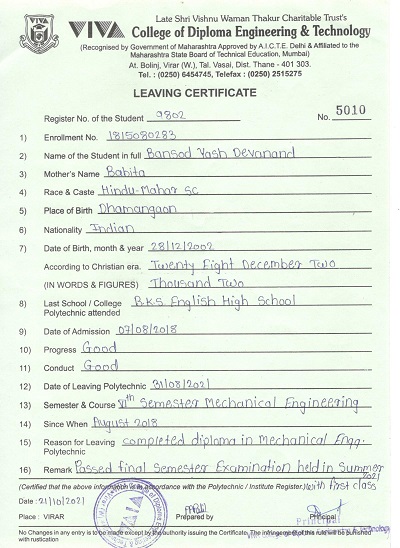 Late Shri Vishnu Waman Thakur Charitable Trust's
VIVA College of Diploma Engineering & Technology
(Recognised by Government of Maharashtra Approved by A.I.C.T.E. Delhi & Affiliated to the
Maharashtra State Board of Technical Education, Mumbai)
At. Bolinj, Virar (W.), Tal. Vasai, Dist. Thane - 401 303.
Tel. : (0250) 6454745, Telefax : (0250) 2515275
LEAVING CERTIFICATE
Register No. of the Student 9802 No. 5010
1) Enrollment No. 1815080283
2) Name of the Student in full Bansod Yash Devanand
3) Mother's Name Babita
4) Race & Caste Hindu-Mahar SC
5) Place of Birth Dhamangaon
6) Nationality Indian
7) Date of Birth, month & year 28/12/2002
According to Christian era. Twenty Eight December Two
(IN WORDS & FIGURES) Thousand Two
8) Last School / College B.K.S. English High School
Polytechnic attended
9) Date of Admission 07/08/2018
10) Progress Good
11) Conduct Good
12) Date of Leaving Polytechnic 31/08/2021
13) Semester & Course VIth Semester Mechanical Engineering
14) Since When August 2018
15) Reason for Leaving completed diploma in Mechanical Engg.
Polytechnic.
16) Remark Passed final Semester Examination held in Summer
2021
(Certified that the above information is in accordance with the Polytechnic / Institute Register.) with first class
Date : 21/10/2021
Place : VIRAR Prepared by Principal
Principal
No Changes in any entry is to be made except by the authority issuing the Certificate. The infringement of this rule will be punished
with rustication